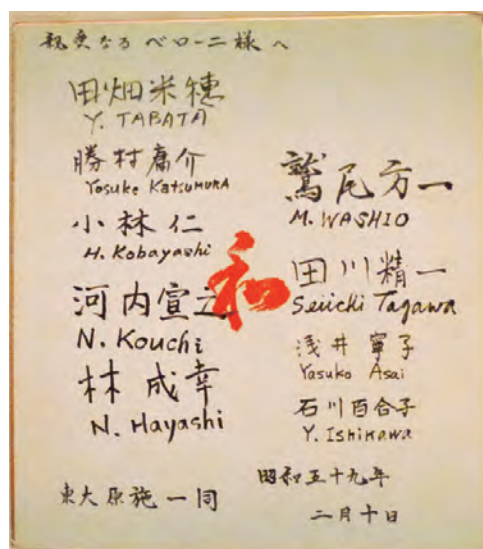 親愛なる ベローニ様 へ
田畑米穂
Y. TABATA
勝村庸介
Yosuke KATSUMURA
小林 仁
H. Kobayashi
河内宣之
N. Kouchi
林 成幸
N. Hayashi
和
鷲尾方一
M. WASHIO
田川精一
Seiichi Tagawa
浅井寧子
Yasuko Asai
石川百合子
Y. Ishikawa
東大原施一同
昭和五十九年
二月十日